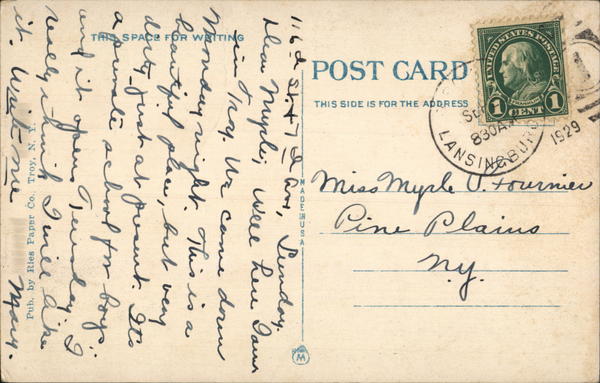 THIS SPACE FOR WRITING
116 St. & 7 Ave, Sunday.
Dear Myrle, Well here I am
in Troy. We came down
Monday night. This is a
beautiful place, but very
dirty just at present. It's
a private school for boys
and it opens Tuesday. I
really think I will like
it. Write me
Mary.
Pub. by Ries Paper Co. Troy, N. Y.
MADE IN USA
POST CARD
THIS SIDE IS FOR THE ADDRESS
UNITED STATES POSTAGE
FRANKLIN
1 CENT 1
SE
830A
LANSINGBUR
1929
1
Miss Myrle V. Fournier
Pine Plains
N.Y.